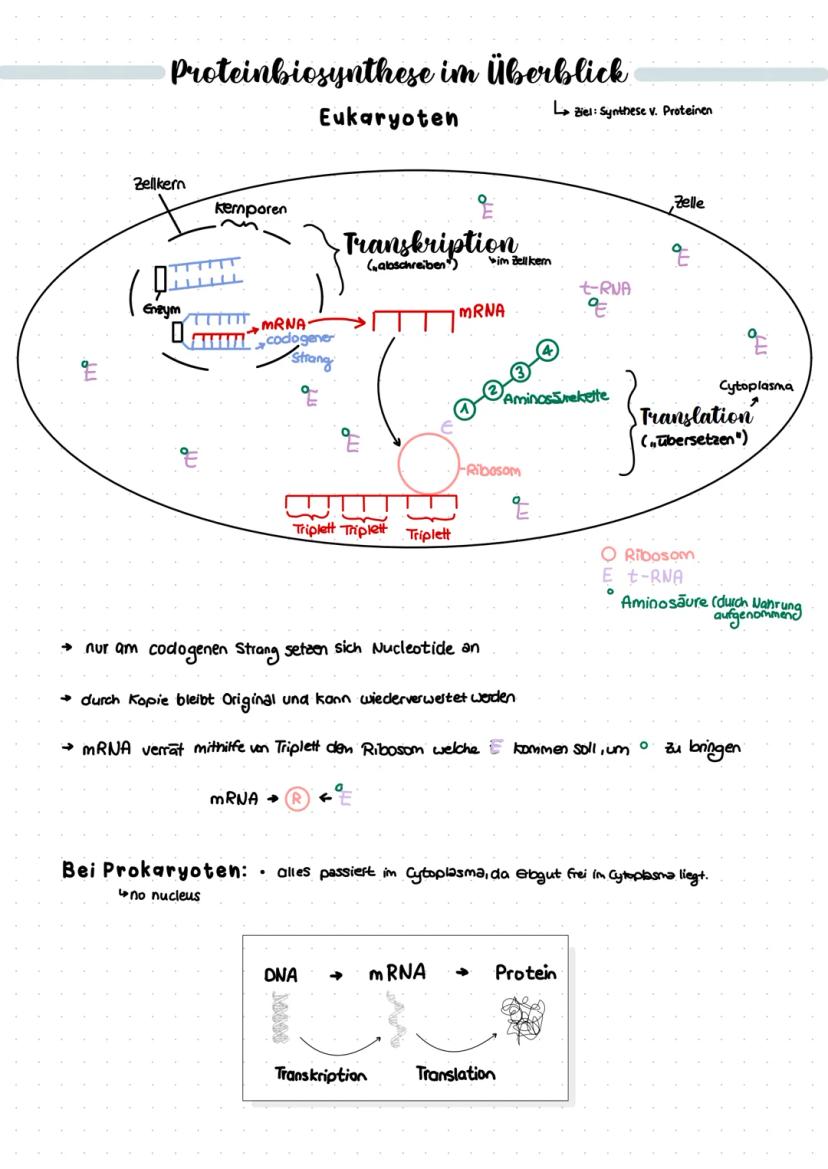 Proteinbiosynthese im Überblick
Eukaryoten
↳ Ziel: Synthese v. Proteinen
Zellkern
Kernporen
Zelle
Transkription
("abschreiben")
↳ im Zellkern
t-RNA
Enzym
mRNA
mRNA
codogener
Strang
4
3
2
1
Aminosäurekette
Cytoplasma
Translation
("Übersetzen")
E
Ribosom
Triplett Triplett Triplett
Ribosom
E t-RNA
Aminosäure (durch Nahrung
aufgenommen)
→ nur am codogenen Strang setzen sich Nucleotide an
→ durch Kopie bleibt Original und kann wiederverwertet werden
→ mRNA verrät mithilfe von Triplett den Ribosom welche E kommen soll, um o zu bringen
mRNA → R ← E
Bei Prokaryoten: • alles passiert im Cytoplasma, da Erbgut frei im Cytoplasma liegt.
↳ no nucleus
DNA → mRNA → Protein
Transkription Translation